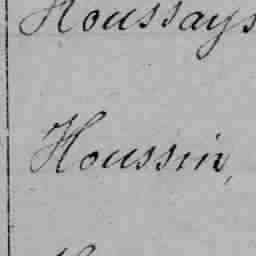 Houssays
Houssin,